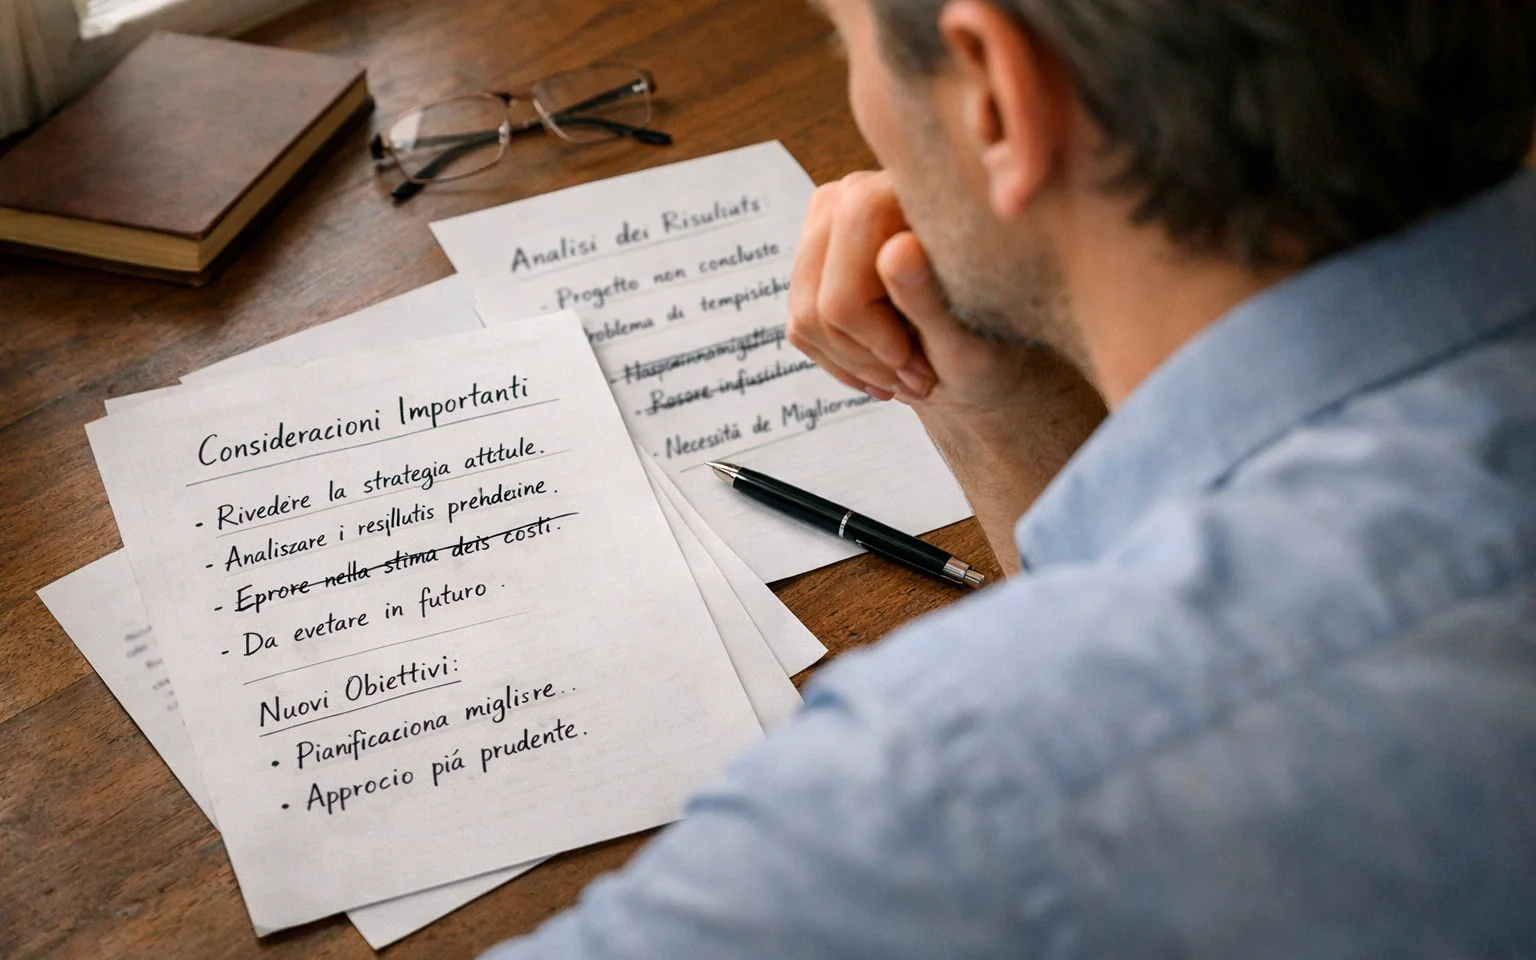 Consideracioni Importanti
- Rivedere la strategia atttule.
- Analiszare i resjllutis prehdeine.
- Eprore nella stima deis costi.
- Da evetare in futuro.
Nuovi Obiettivi:
• Pianificaciona miglisre..
• Approcio piá prudente.
Analisi dei Risuliuts:
- Progetto non conclusto
roblema di
- Rosore
- Necessitá de